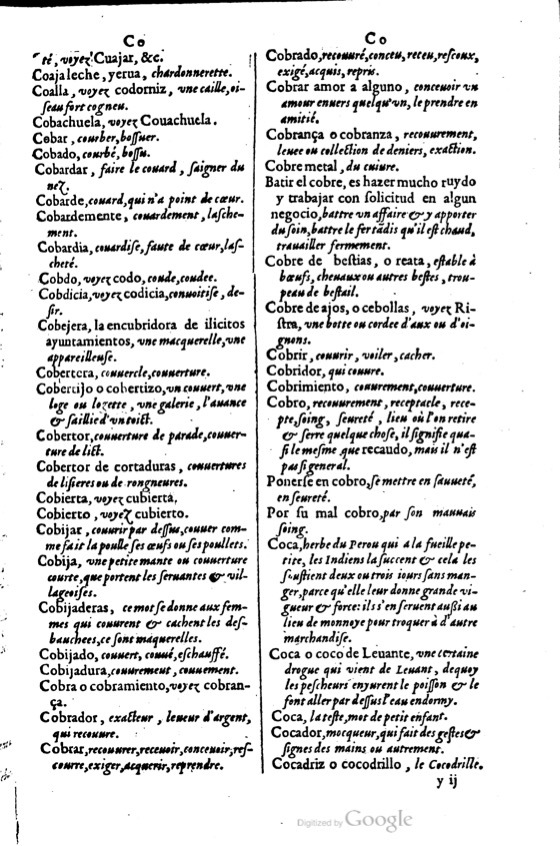 Co
té, voyez Cuajar, &c.
Coaja leche, yerua, chardonnerette.
Coalla, voyez codorniz, vne caille, oi-
seau fort cogneu.
Cobachuela, voyez Couachuela.
Cobar, courber, bossuer.
Cobado, courbé, bossu.
Cobardar, faire le couard, saigner du
nez.
Cobarde, couard, qui n'a point de cœur.
Cobardemente, couardement, lasche-
ment.
Cobardia, couardise, faute de cœur, las-
cheté.
Cobdo, voyez codo, coude, coudee.
Cobdicia, voyez codicia, conuoitise, de-
sir.
Cobejera, la encubridora de ilicitos
ayuntamientos, vne macquerelle, vne
appareilleuse.
Cobertera, couuercle, couuerture.
Cobertijo o cobertizo, vn couuert, vne
loge ou logette, vne galerie, l'auance
& saillie d'vn toict.
Cobertor, couuerture de parade, couuer-
ture de lict.
Cobertor de cortaduras, couuertures
de lisieres ou de rongneures.
Cobierta, voyez cubierta.
Cobierto, voyez cubierto.
Cobijar, couurir par dessus, couuer com-
me fait la poulle ses œufs ou ses poullets.
Cobija, vne petite mante ou couuerture
courte, que portent les seruantes & vil-
lageoises.
Cobijaderas, ce mot se donne aux fem-
mes qui couurent & cachent les des-
bauchees, ce sont maquerelles.
Cobijado, couuert, couué, eschauffé.
Cobijadura, couurement, couuement.
Cobra o cobramiento, voyez cobran-
ça.
Cobrador, exacteur, leueur d'argent,
qui recouure.
Cobrar, recouurer, receuoir, conceuoir, res-
courre, exiger, acquerir, reprendre.
Co
Cobrado, recouuré, conceu, receu, rescoux,
exigé, acquis, repris.
Cobrar amor a alguno, conceuoir vn
amour enuers quelqu'vn, le prendre en
amitié.
Cobrança o cobranza, recouurement,
leuee ou collection de deniers, exaction.
Cobre metal, du cuiure.
Batir el cobre, es hazer mucho ruydo
y trabajar con solicitud en algun
negocio, battre vn affaire & y apporter
du soin, battre le fer tãdis qu'il est chaud,
trauailler fermement.
Cobre de bestias, o reata, estable à
bœufs, cheuaux ou autres bestes, trou-
peau de bestail.
Cobre de ajos, o cebollas, voyez Ri-
stra, vne botte ou cordee d'aux ou d'oi-
gnons.
Cobrir, couurir, voiler, cacher.
Cobridor, qui couure.
Cobrimiento, couurement, couuerture.
Cobro, recouurement, receptacle, rece-
pte, soing, seureté, lieu où l'on retire
& serre quelque chose, il signifie qua-
si le mesme que recaudo, mais il n'est
pas si general.
Ponerse en cobro, se mettre en sauueté,
en seureté.
Por su mal cobro, par son mauuais
soing.
Coca, herbe du Perou qui a la fueille pe-
tite, les Indiens la succent & cela les
soustient deux ou trois iours sans man-
ger, parce qu'elle leur donne grande vi-
gueur & force: ils s'en seruent aussi au
lieu de monnoye pour troquer à d'autre
marchandise.
Coca o coco de Leuante, vne certaine
drogue qui vient de Leuant, dequoy
les pescheurs enyurent le poisson & le
font aller par dessus l'eau endormy.
Coca, la teste, mot de petit enfant.
Cocador, mocqueur, qui fait des gestes &
signes des mains ou autrement.
Cocadriz o cocodrillo, le Cocodrille.
y ij
Digitized by Google